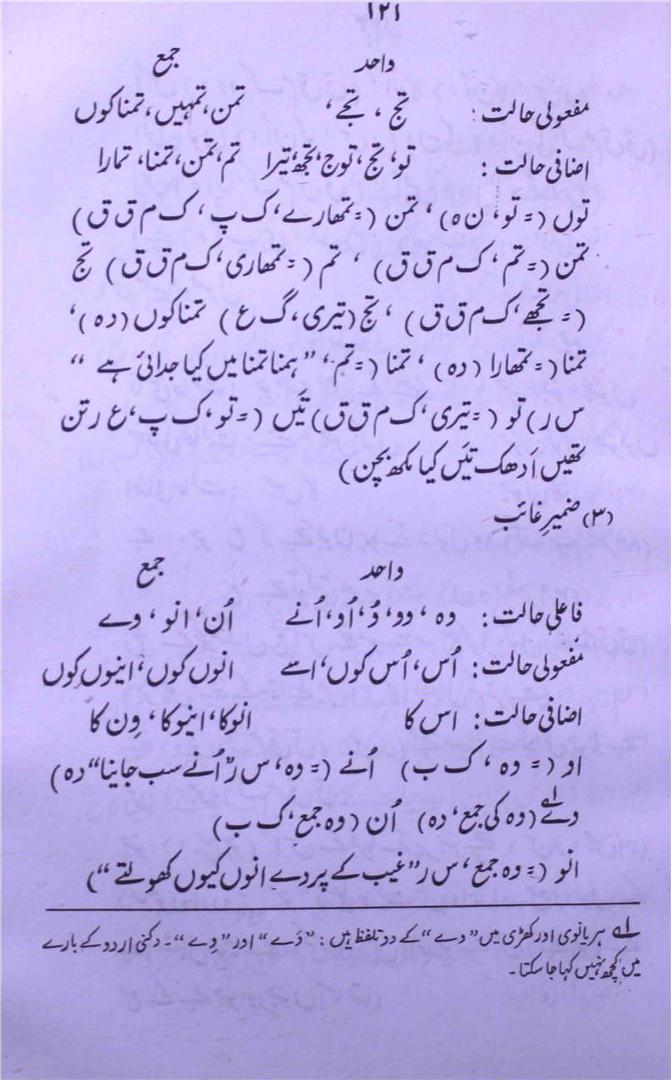 ۱۲۱
واحد جمع
مفعولی حالت: تج، تجے، تمن، تمہیں، تمناکوں
اضافی حالت: تو، تج، توج، تجھ، تیرا تم، تمن، تمنا، تمارا
توں (= تو، ن ہ)، تمن (= تمھارے، ک پ، ک م ق ق)
تمن (= تم، ک م ق ق)، تم (= تمھاری، ک م ق ق) تج
(= تجھے، ک م ق ق)، تج (تیری، گ ع) تمناکوں (دہ)،
تمنا (= تمھارا (دہ)، تمنا (= تم، "ہمنا تمنا میں کیا جدائی ہے"
س ر) تو (= تیری، ک م ق ق) تَیں (= تو، ک پ، ع رتن
کھیں ادھک تَیں کیا مکھ بچن)
(۳) ضمیر غائب
واحد جمع
فاعلی حالت: وہ، وو، وُ، اُو، اُنے اُن، انو، وے
مفعولی حالت: اُس، اُس کوں، اسے انوں کوں، انیوں کوں
اضافی حالت: اس کا انوکا، انیوکا، وِن کا
او (= وہ، ک ب) اُنے (= وہ، س ر "اُنے سب جاینا" دہ)
وے؂۱ (وہ کی جمع، دہ) اُن (وہ جمع، ک ب)
انو (= وہ جمع، س ر "غیب کے پردے انوں کیوں کھولتے")
؂۱ ہریانوی اور کھڑی میں "وے" کے دو تلفظ ہیں: "وَے" اور "وِے"۔ دکنی اردو کے بارے
میں کچھ نہیں کہا جا سکتا۔